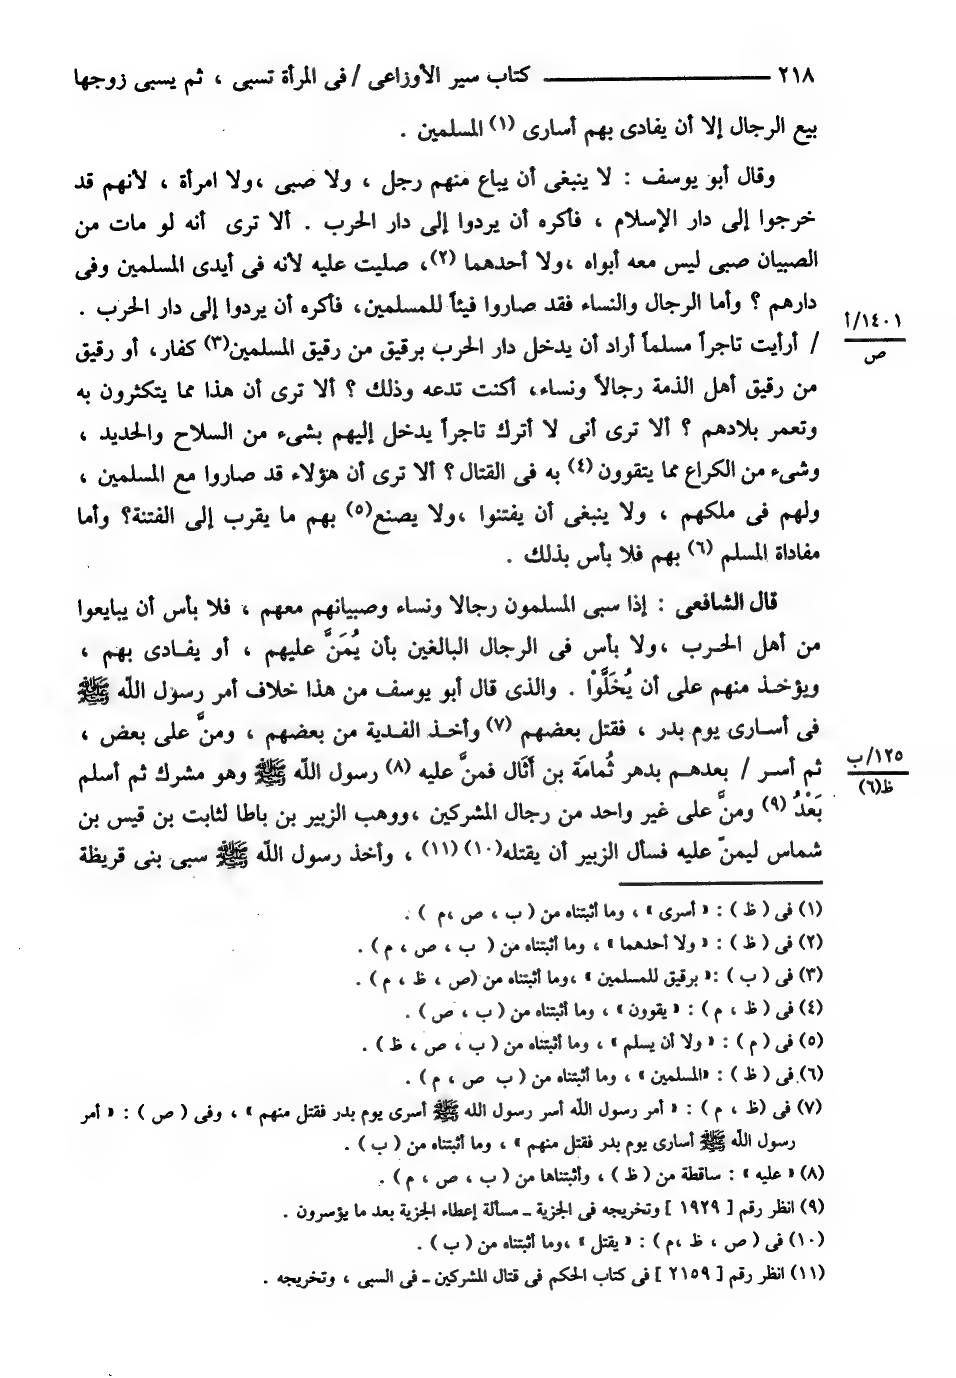 ٢١٨ ــــــــــــــــــ كتاب سير الأوزاعى / فى المرأة تسبى ، ثم يسبى زوجها
بيع الرجال إلا أن يفادى بهم أسارى (١) المسلمين .
وقال أبو يوسف : لا ينبغى أن يباع منهم رجل ، ولا صبى ،ولا امرأة ، لأنهم قد
خرجوا إلى دار الإسلام ، فأكره أن يردوا إلى دار الحرب . ألا ترى أنه لو مات من
الصبيان صبى ليس معه أبواه ،ولا أحدهما (٢)، صليت عليه لأنه فى أيدى المسلمين وفى
دارهم ؟ وأما الرجال والنساء فقد صاروا فيئاً للمسلمين، فأكره أن يردوا إلى دار الحرب .
١٤٠١/أ
ص
/ أرأيت تاجراً مسلماً أراد أن يدخل دار الحرب برقيق من رقيق المسلمين(٣) كفار، أو رقيق
من رقيق أهل الذمة رجالاً ونساء، أكنت تدعه وذلك ؟ ألا ترى أن هذا مما يتكثرون به
وتعمر بلادهم ؟ ألا ترى أنى لا أترك تاجراً يدخل إليهم بشىء من السلاح والحديد ،
وشىء من الكراع مما يتقوون (٤) به فى القتال ؟ ألا ترى أن هؤلاء قد صاروا مع المسلمين ،
ولهم فى ملكهم ، ولا ينبغى أن يفتنوا ،ولا يصنع(٥) بهم ما يقرب إلى الفتنة؟ وأما
مفاداة المسلم (٦) بهم فلا بأس بذلك .
قال الشافعى : إذا سبى المسلمون رجالا ونساء وصبيانهم معهم ، فلا بأس أن يبايعوا
من أهل الحرب ،ولا بأس فى الرجال البالغين بأن يُمَنَّ عليهم ، أو يفادى بهم ،
ويؤخذ منهم على أن يُخَلَّوْا . والذى قال أبو يوسف من هذا خلاف أمر رسول اللّه ﷺ
فى أسارى يوم بدر ، فقتل بعضهم (٧) وأخذ الفدية من بعضهم ، ومنَّ على بعض ،
١٢٥/ب
ظ(٦)
ثم أسر / بعدهم بدهر ثُمامَة بن أثَال فمنَّ عليه (٨) رسول اللّه ﷺ وهو مشرك ثم أسلم
بَعْدُ (٩) ومنَّ على غير واحد من رجال المشركين ،ووهب الزبير بن باطا لثابت بن قيس بن
شماس ليمنّ عليه فسأل الزبير أن يقتله(١٠) (١١) ، وأخذ رسول اللّه ﷺ سبى بنى قريظة
(١) فى ( ظ ) : « أسرى » ، وما أثبتناه من ( ب ، ص ،م ) .
(٢) فى ( ظ ) : « ولا أحدهما » ، وما أثبتناه من ( ب ، ص ، م ) .
(٣) فى ( ب ) :« برقيق للمسلمين » ،وما أثبتناه من (ص ، ظ ، م ) .
(٤) فى ( ظ ، م ) : « يقوون » ، وما أثبتناه من ( ب ، ص ) .
(٥) فى ( م ) : « ولا أن يسلم » ، وما أثبتناه من ( ب ، ص ، ظ ) .
(٦) فى ( ظ ) : «المسلمين » ، وما أثبتناه من ( ب ص ، م ) .
(٧) فى (ظ ، م ) : « أمر رسول اللّه أسر رسول الله ﷺ أسرى يوم بدر فقتل منهم » ، وفى ( ص ) : « أمر
رسول اللّه ﷺ أسارى يوم بدر فقتل منهم » ، وما أثبتناه من ( ب ) .
(٨) « عليه » : ساقطة من ( ظ ) ، وأثبتناها من ( ب ، ص ، م ) .
(٩) انظر رقم [ ١٩٢٩ ] وتخريجه فى الجزية ــ مسألة إعطاء الجزية بعد ما يؤسرون .
(١٠) فى ( ص ، ظ ،م ) : « يقتل » ،وما أثبتناه من ( ب ) .
(١١) انظر رقم [ ٢١٥٩ ] فى كتاب الحكم فى قتال المشركين ــ فى السبى ، وتخريجه .